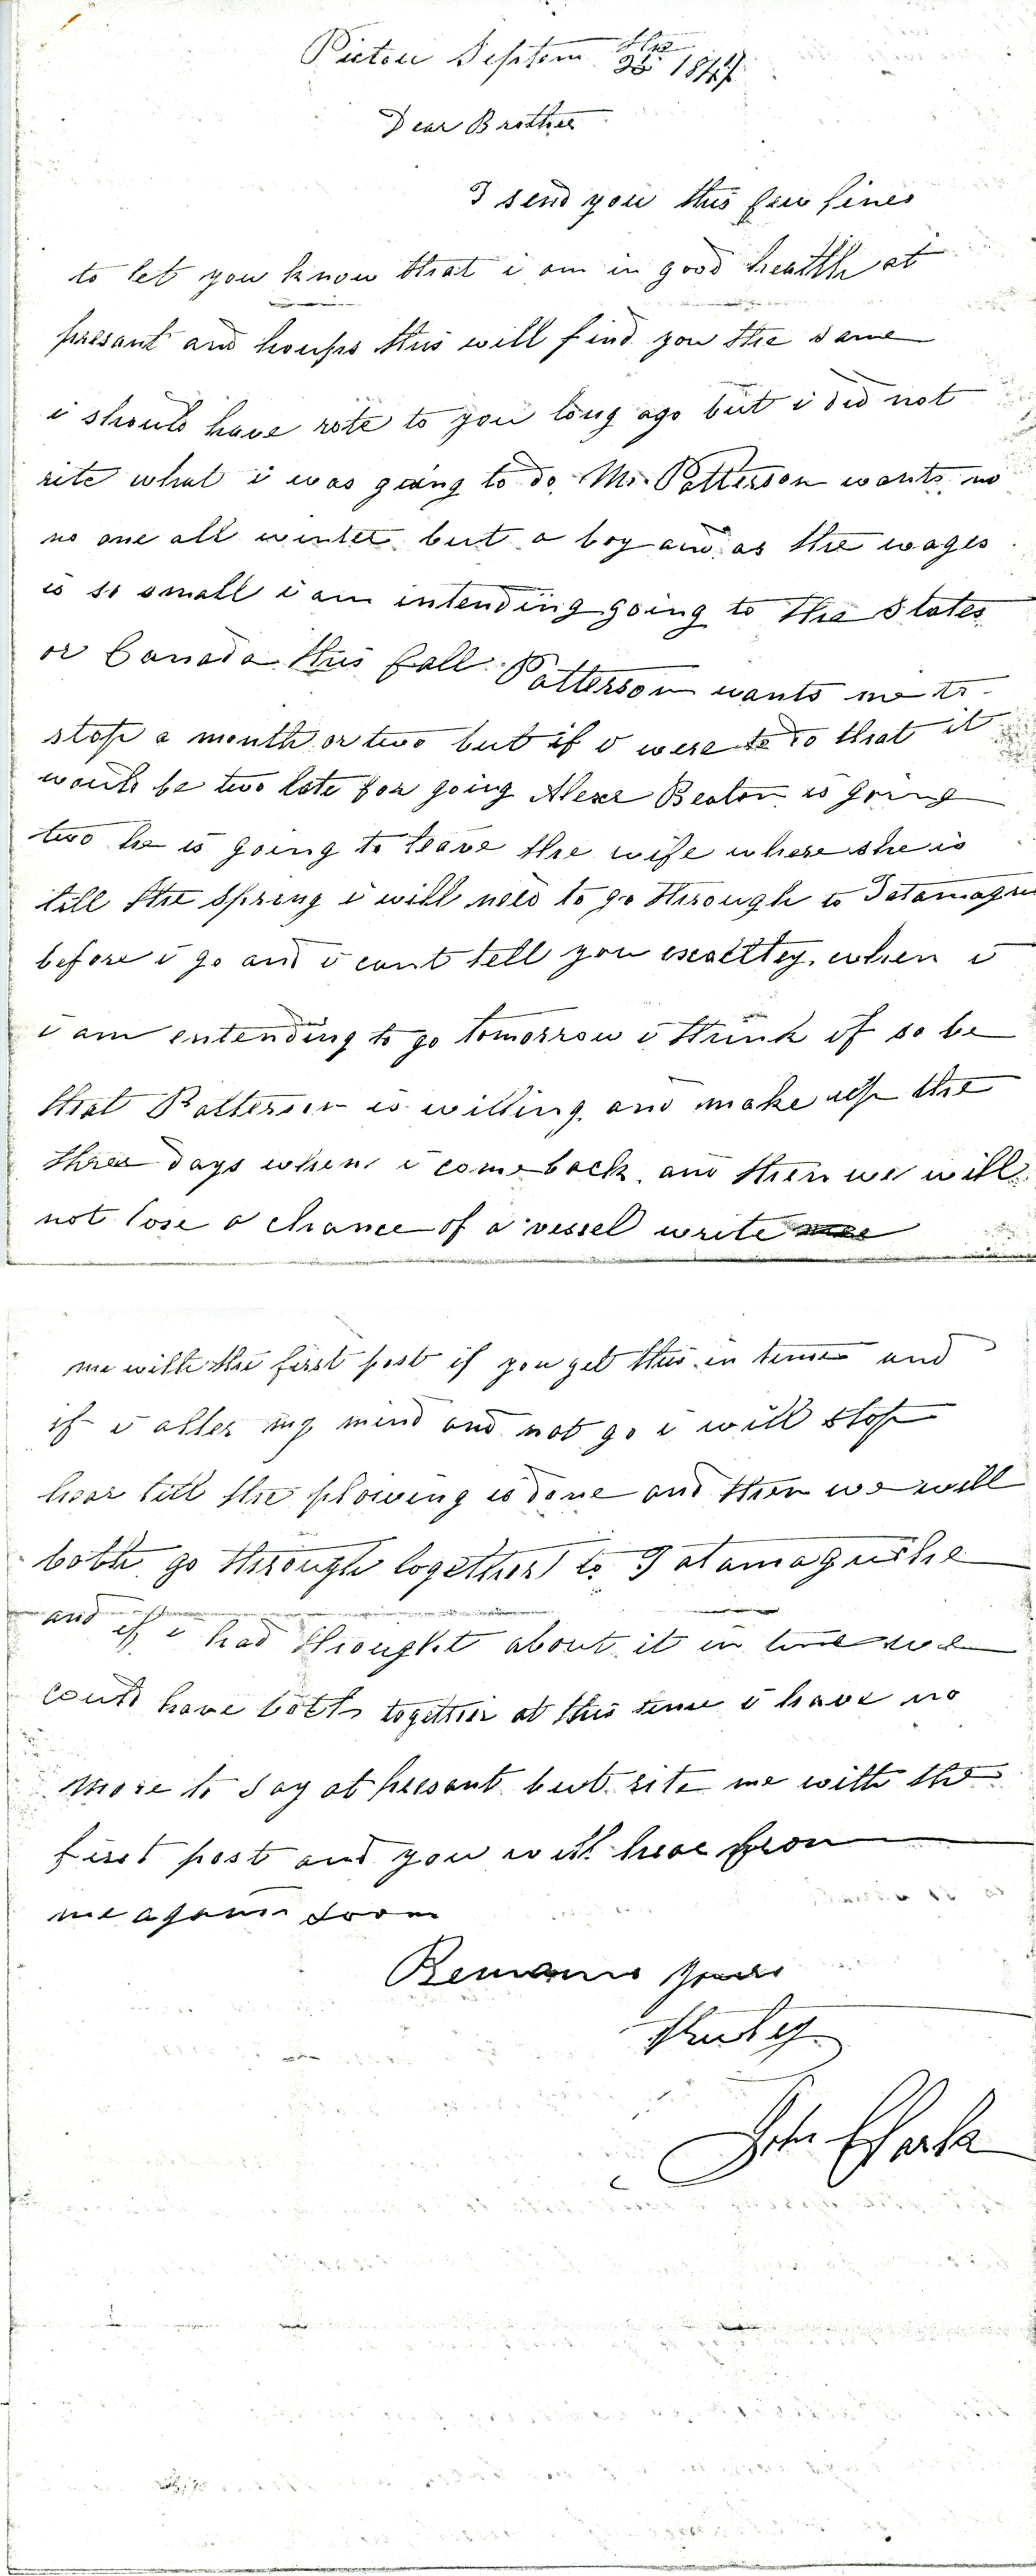 Pictou Septem the 25 1847
Dear Brother
I send you this few lines
to let you know that i am in good health at
presant and houps this will find you the same
i should have rote to you long ago but i did not
rite what i was going to do Mr Patterson wants no
no one all winter but a boy and as the wages
is so small i am intending going to the States
or Canada this fall Patterson wants me to
stop a month or two but if i were to do that it
would be two late for going Alexr Beaton is going
two he is going to leave the wife where she is
till the spring i will need to go through to Tatamagu
before i go and i cant tell you exacttey when i
i am entending to go tomorrow i think if so be
that Patterson is willing and make up the
three days when i come back and then we will
not lose a chance of a vessel write
me with the first post if you get this in time and
if i alter my mind and not go i will stop
hear till the plowing is done and then we will
both go through together to Tatamagushe
and if i had thought about it in time we
could have both together at this time i have no
more to say at presant but rite me with the
first post and you will hear from
me again soon
Remains yours
truley
John Clark